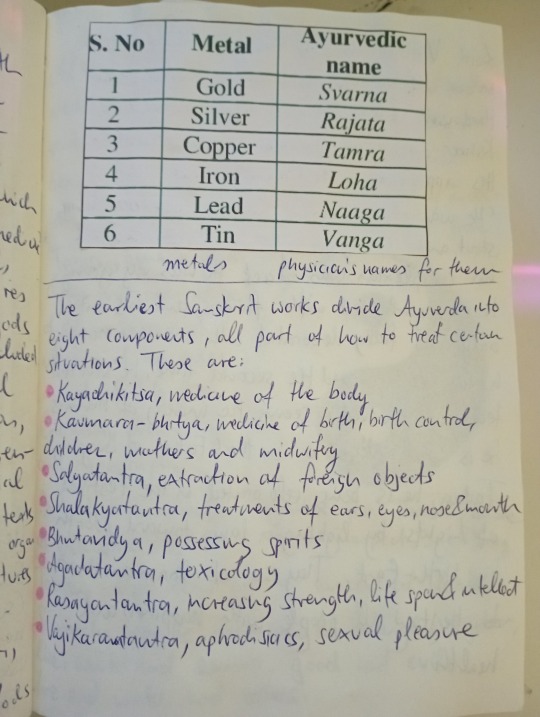 S. No Metal Ayurvedic name
1 Gold Svarna
2 Silver Rajata
3 Copper Tamra
4 Iron Loha
5 Lead Naaga
6 Tin Vanga
metals physician's names for them
The earliest Sanskrit works divide Ayuverda into
eight components, all part of how to treat certain
situations. These are:
• Kayachikitsa, medicine of the body
• Kaumara-bhrtya, medicine of birth, birth control,
children, mothers and midwifery
• Salyatantra, extraction of foreign objects
• Shalakyatantra, treatments of ears, eyes, nose&mouth
• Bhutavidya, possessing spirits
• Agadatantra, toxicology
• Rasayantantra, increasing strength, life span & intellect
• Vajikaranatantra, aphrodisiacs, sexual pleasure